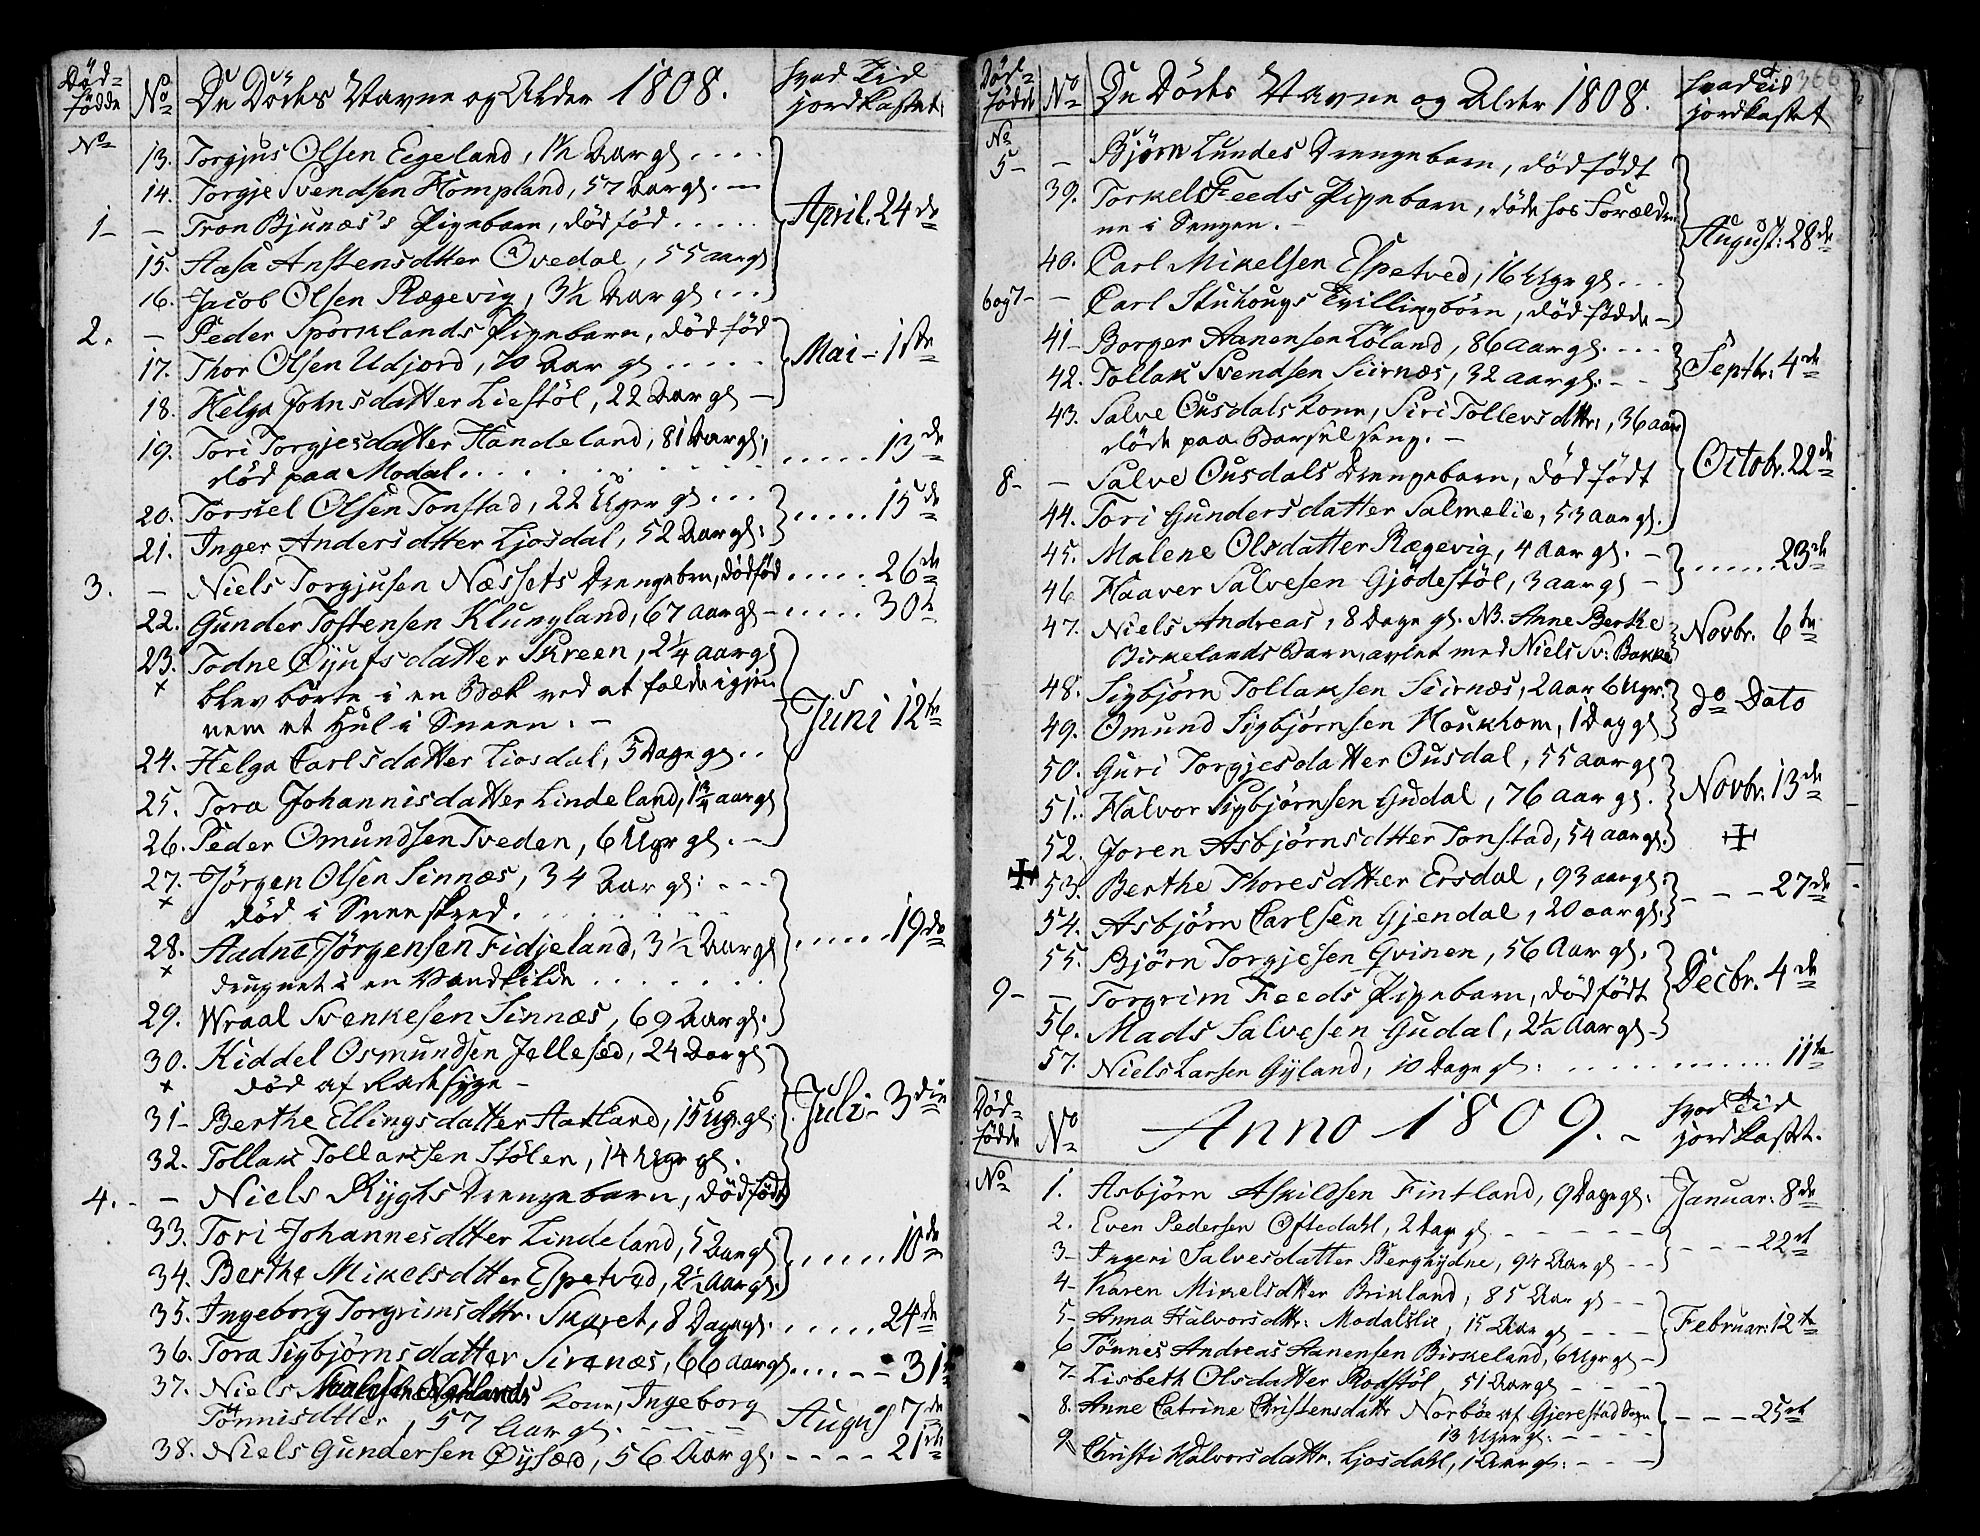 Død-
fødde
No
De Dödes Navne og Alder 1808.
hvad Tid
jordkastet.
No
13. Torgjus Olsen Eigeland, 1½ Aar gl. ....
14. Torgje Svendsen Hompland, 57 Aar gl. —
April. 24de
1- — Tron Bjunæs's Pigebarn, dödfød .....
15. Aasa Anstensdtter Ovedal, 55 aar gl
16. Jacob Olsen Rægevig, 3½ Aar gl. ...
2. — Peder Sporklands Pigebarn, dödfød
17. Thor Olsen Udjord, 70 Aar gl .....
Mai - 1ste
18. Helga Johnsdatter Liestöl, 22 Aar gl —
19. Tori Torgjesdatter Handeland, 81 Aar gl,
död paa Modal . . . . . .
..... 13de
20. Torkel Olsen Tonstad, 22 Uger gl ...
..... 15de
21. Inger Andersdtter Ljosdal, 52 Aar gl.
3. — Niels Torgjusen Næssets Drengebrn, dödfød ..... 26de
22. Gunder Tostensen Klungland, 67 aar gl - ..... 30te
23. Todne Øyufsdatter Skreen, 2¼ aar gl
× blev börte i en Bæk ved at falde igjen-
nem et Hul i Sneen. —
Juni 12te
24. Helga Carlsdatter Liosdal, 5 Dage gl ..
25. Tora Johannisdatter Lindeland, 1¾ aar gl
26. Peder Omundsen Tveden, 6 Ugr gl. —
27. Jørgen Olsen Sinnæs, 34 Aar gl: ---
× död i Sneeskred. . . . .
28. Aadne Jörgensen Fidjeland, 3½ Aar gl
..... 19de
× drugnet i en Vandkilde . . . . . .
29. Wraal Svenkesen Sinnæs, 69 Aar gl.
30. Kiddel Osmundsen Jellesed, 24 Aar gl
× död af Raadsyge -
Juli - 3die
31- Berthe Ellingsdatter Aartland, 15 Ugr. gl.
32. Tollak Tollaksen Stölen, 14 Ugr gl.
4. - — Niels Rygls Drengebarn, dödfödt
33. Tori Johannesdtter Lindeland, 5 Aar gl
..... 10de
34. Berthe Mikelsdtter Espetved, 2½ Aar gl.
35. Ingeborg Torgrimsdttr. Skaret, 8 Dage gl. ..... 24de
36. Tora Sigbjörnsdatter Sirenæs, 66 aar gl. ..... 31te
37. Niels Kone, Ingeborg
Tönnisdtter, 57 Aar gl. - - - - -
August 7de
38. Niels Gundersen Øysæd, 56 Aar gl. - - - - 21de
Død-
fødde
No
De Dödes Navne og Alder 1808.
hvad Tid
jordkastet
366
No
5- — Björn Lundes Drengebarn, dödfödt
39. Torkels Feeds Pigebarn, döde hos Forældre-
ne i Sengen. —
August: 28de
40. Carl Mikelsen Espetved, 16 Ugr gl. ...
6 og 7- — Carl Stuhougs Tvillingbörn, dödfødde —
41- Borger Aanensen Löland, 86 aar gl. ...
Septbr: 4de
42. Tollak Svendsen Siirnæs, 32 aar gl. - -
43. Salve Ousdals Kone, Siri Tollevsdttr., 36 aar
döde paa Barselseng. —
Octobr. 22de
8- — Salve Ousdals Drengebarn, dödfödt
44. Tori Gundersdatter Salmelie, 53 aar gl.
45. Malene Olsdatter Rægevig, 4 Aar gl. —
...... 23de
46 Haaver Salvesen Gjödestöl, 3 aar gl —
47. Niels Andreas, 8 Dage gl. NB. Anne Berthe
Birkelands Barn, avlet med Niels Sv: Bakke
Novbr. 6te
48. Sigbjörn Tollaksen Siirnæs, 2 Aar 6 Ugr.
do Dato
49. Omund Sigbjørnsen Houkhom, 1 Dag gl
50. Guri Torgjesdatter Ousdal, 55 aar gl
51. Halvor Sigbjørnsen Gudal, 76 aar gl.
Novbr. 13de
52. Joren Asbjörnsdtter Tonstad, 54 aar gl.
53. Berthe Thoresdtter Ersdal, 93 aar gl.
- - - 27de
54. Asbjørn Carlsen Gjendal, 20 aar gl.
55. Björn Torgjesen Qvinen, 56 Aar gl.
Decbr. 4de
9- — Torgrim Feeds Pigebarn, dödfödt
56. Mads Salvesen Gudal, 2½ Aar gl -
57. Niels Larsen Gyland, 10 Dage gl: ............ 11te
Död-
födde
No
Anno 1809. -
hvad Tid
jordkastet.
No
1. Asbjörn Askildsen Fintland, 9 Dage gl. Januar: 8de
2. Even Pedersen Oftedahl, 2 Dag gl - - - - -
- - - 22de
3- Ingeri Salvesdatter Berghydne, 94 Aar gl - -
4- Karen Mikelsdtter Brikland, 85 Aar gl - -
5- Anna Halvorsdttr: Modalslie, 15 Aar gl - - -
Februar: 12te
6 Tönnes Andreas Aanensen Birkeland, 6 Ugr gl -
7- Lisbeth Olsdatter Rodstöl, 51 Aar gl - - -
8. Anne Catrine Christensdattr Norböe af Gjerestad Sogn
13 Uger gl. - - - -
- - - 25de
9 Christi Halvorsdattr. Ljosdahl, 1 Aar gl. - - -